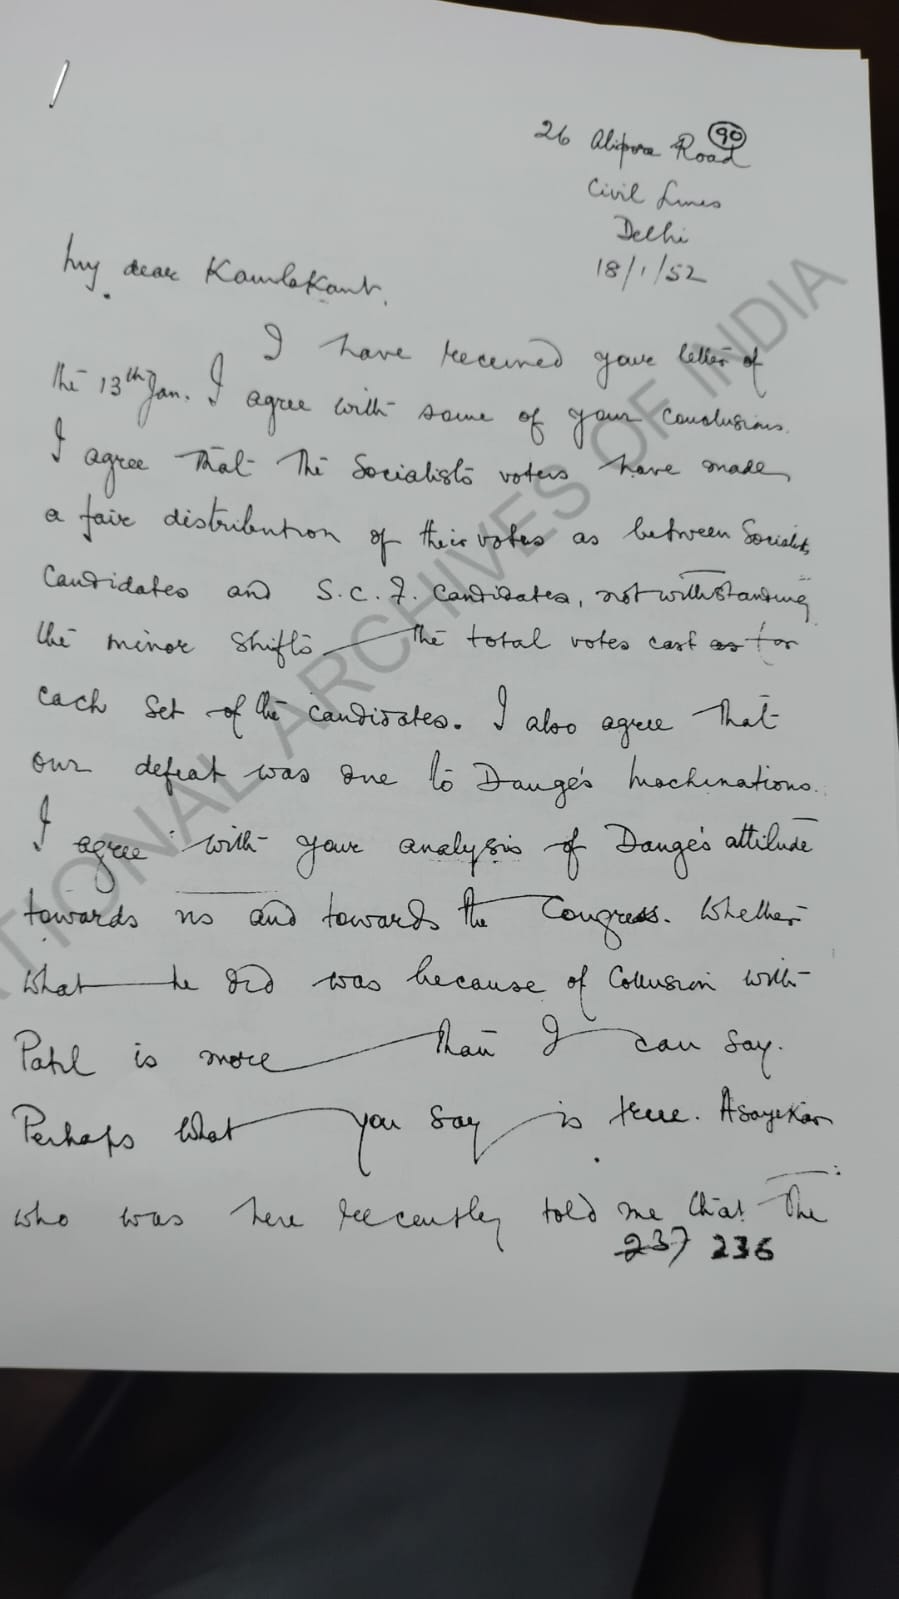 90
26 Alipore Road
Civil Lines
Delhi
18/1/52
My dear Kamlakant,
I have received your letter of
the 13th Jan. I agree with some of your conclusions.
I agree that the Socialists voters have made
a fair distribution of their votes as between Socialist
Candidates and S.C.F. Candidates, notwithstanding
the minor shifts the total votes cast as for
each set of the candidates. I also agree that
our defeat was due to Dange's machinations.
I agree with your analysis of Dange's attitude
towards us and towards the Congress. Whether
what he did was because of Collusion with
Patil is more than I can say.
Perhaps what you say is true. Asayekar
who was here recently told me that the
237 236
NATIONAL ARCHIVES OF INDIA